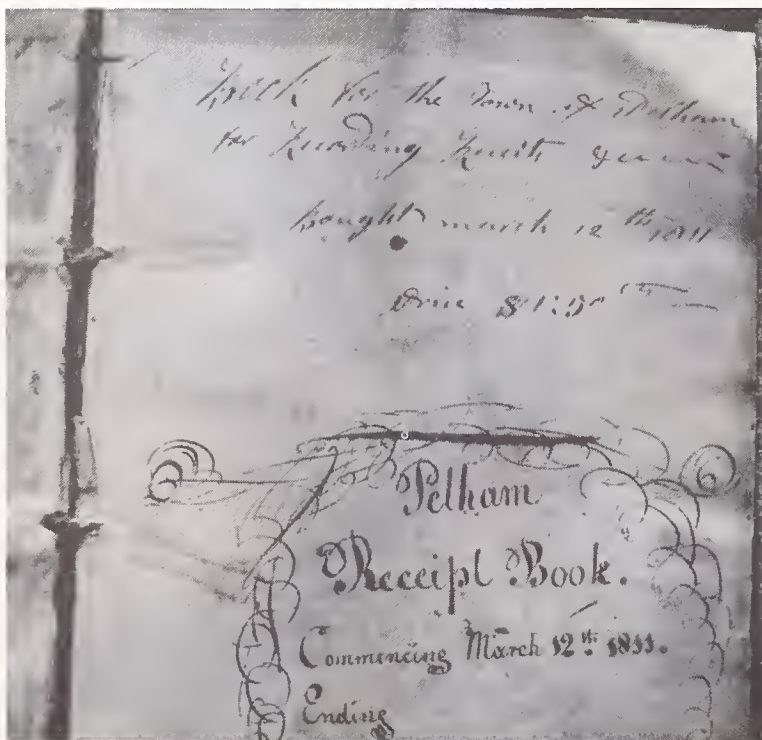 Book for the Town of Pelham
for Recording Receits
bought march 12th 1811
Price $1:50
Pelham
Receipt Book.
Commencing March 12th 1811.
Ending